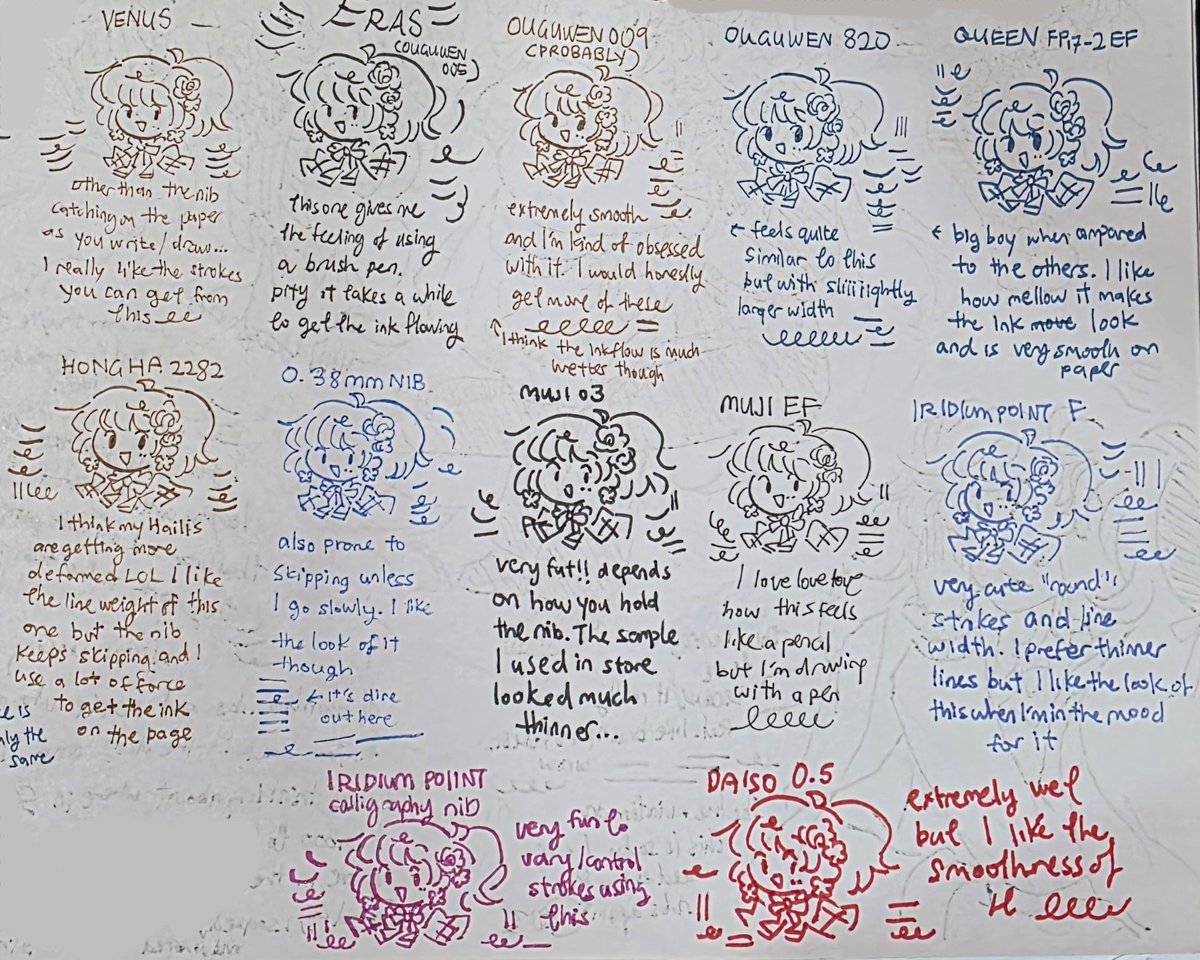 VENUS
other than the nib
catching on the paper
as you write/draw...
I really like the strokes
you can get from
this
ERAS
(OUGUWEN
005)
this one gives me
the feeling of using
a brush pen.
pity it takes a while
to get the ink flowing
OUGUWEN 009
(PROBABLY)
extremely smooth
and I'm kind of obsessed
with it. I would honestly
get more of these
I think the inkflow is much
wetter though
OUGUWEN 820
← feels quite
similar to this
but with sliiiightly
larger width
QUEEN FP17-2 EF
← big boy when compared
to the others. I like
how mellow it makes
the ink move look
and is very smooth on
paper
HONGHA 2282
I think my Hailis
are getting more
deformed LOL I like
the line weight of this
one but the nib
keeps skipping and I
use a lot of force
to get the ink
on the page
is
the
same
0.38mm NIB
also prone to
skipping unless
I go slowly. I like
the look of it
though
← it's dire
out here
MUJI 03
very fut!! depends
on how you hold
the nib. The sample
I used in store
looked much
thinner...
MUJI EF
I love love love
how this feels
like a pencil
but I'm drawing
with a pen
IRIDIUM POINT F
very cute "round"
strokes and line
width. I prefer thinner
lines but I like the look of
this when I'm in the mood
for it
IRIDIUM POIINT
calligraphy nib
very fun to
vary/control
strokes using
this
DAISO 0.5
extremely wet
but I like the
smoothness of
it